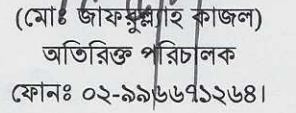 (মোঃ জাফরুল্লাহ কাজল)
অতিরিক্ত পরিচালক
ফোনঃ ০২-৯৯৬৬৭১২৬৪।